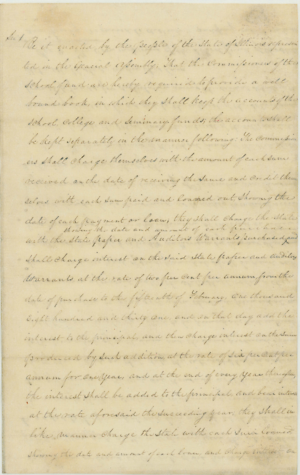 Sec 1 Be it enacted by the People of the State of Illinois represen
ted in the General Assembly, That the Commissioners of the
School fund are hereby required to provide a well
bound book, in which they shall keep the accounts of the
School, College and Seminary funds, the accounts to
be kept separately in the manner following: The commission
ers shall charge themselves with the amount of each sum
received on the date of receiving the same and credit them
selves with each sum paid and loaned out showing the
date of each payment or loan, they shall charge the State
showing the date and amount of each purchase
with the State paper and Auditors Warrants purchased
shall charge interest on the said State paper and Auditors
Warrants at the rate of six per cent per annum from the
date of purchase to the day of February one thousand
eight hundred and thirty one, and on that day add the
interest to the principal and then charge interest on the sum
produced by such addition at the rate of six per cent per
annum for one year and at the end of every year thereafter
the interest shall be added to the principal and bear interest
at the rate aforesaid the succeeding year. they shall in
like manner charge the State with each sum loaned
showing the date and amount of each loan, and charge interest on